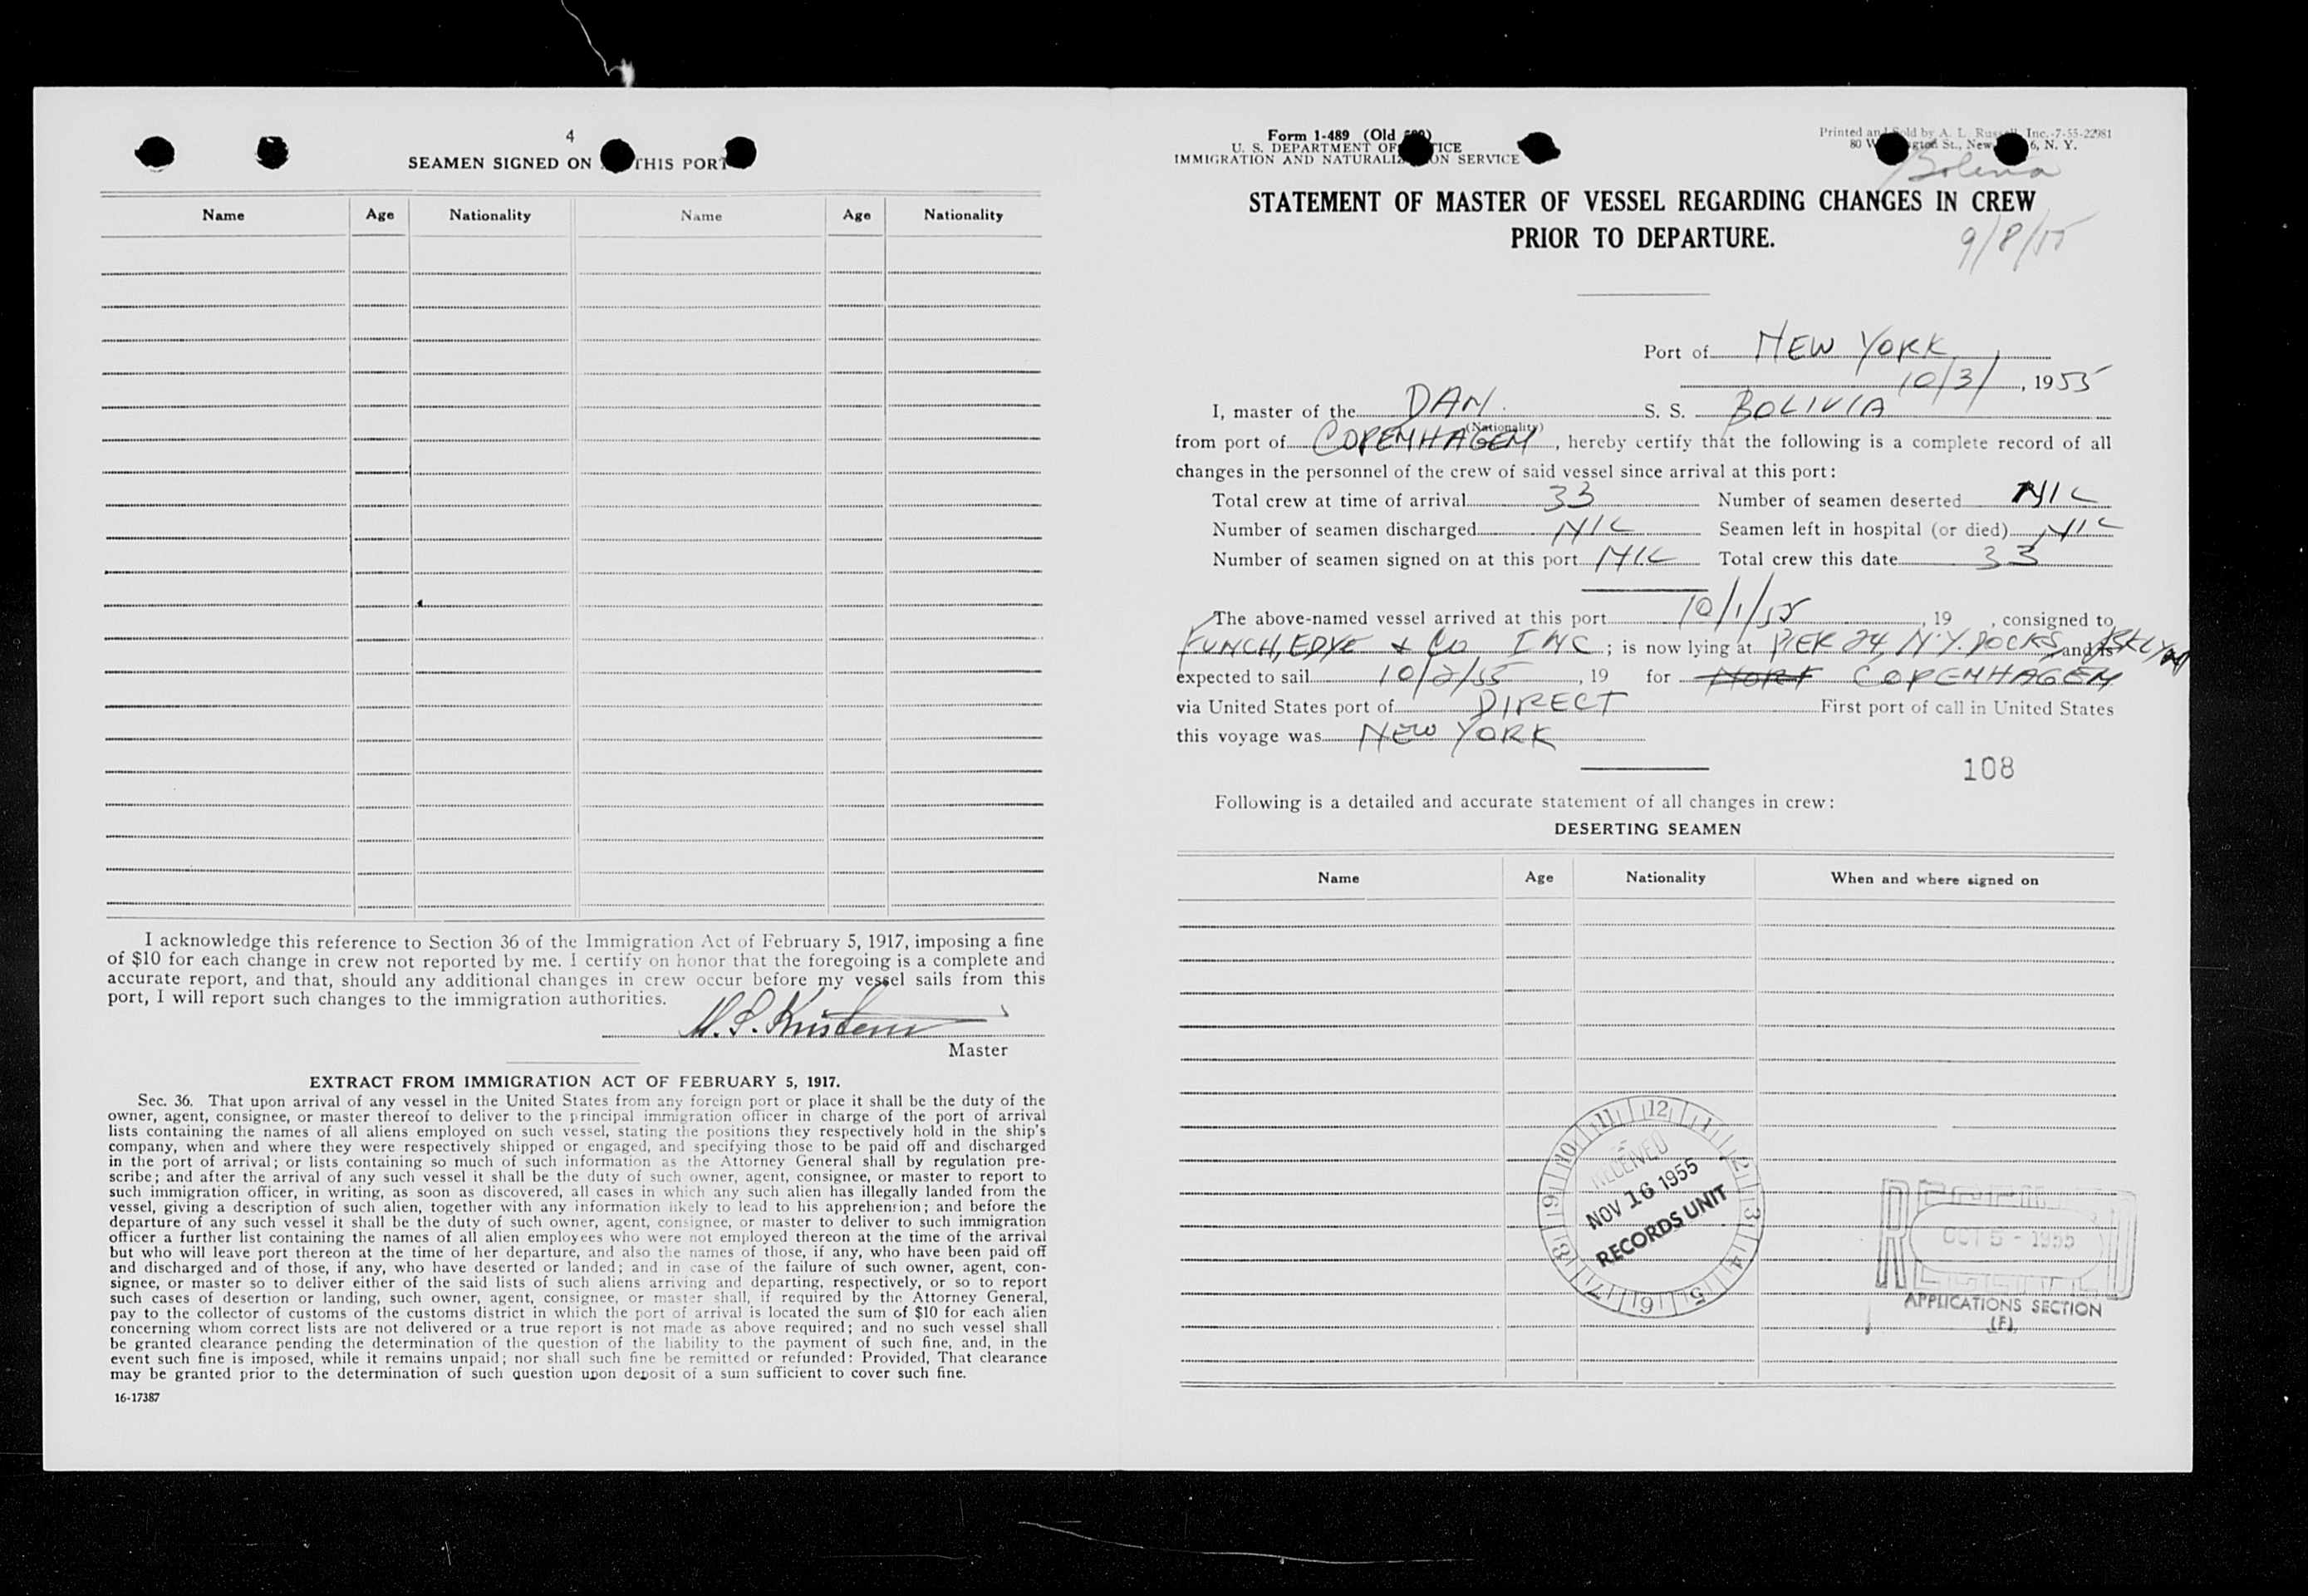 4
SEAMEN SIGNED ON THIS PORT
Name Age Nationality Name Age Nationality
I acknowledge this reference to Section 36 of the Immigration Act of February 5, 1917, imposing a fine
of $10 for each change in crew not reported by me. I certify on honor that the foregoing is a complete and
accurate report, and that, should any additional changes in crew occur before my vessel sails from this
port, I will report such changes to the immigration authorities.
Master
EXTRACT FROM IMMIGRATION ACT OF FEBRUARY 5, 1917.
Sec. 36. That upon arrival of any vessel in the United States from any foreign port or place it shall be the duty of the
owner, agent, consignee, or master thereof to deliver to the principal immigration officer in charge of the port of arrival
lists containing the names of all aliens employed on such vessel, stating the positions they respectively hold in the ship's
company, when and where they were respectively shipped or engaged, and specifying those to be paid off and discharged
in the port of arrival; or lists containing so much of such information as the Attorney General shall by regulation pre-
scribe; and after the arrival of any such vessel it shall be the duty of such owner, agent, consignee, or master to report to
such immigration officer, in writing, as soon as discovered, all cases in which any such alien has illegally landed from the
vessel, giving a description of such alien, together with any information likely to lead to his apprehension; and before the
departure of any such vessel it shall be the duty of such owner, agent, consignee, or master to deliver to such immigration
officer a further list containing the names of all alien employees who were not employed thereon at the time of the arrival
but who will leave port thereon at the time of her departure, and also the names of those, if any, who have been paid off
and discharged and of those, if any, who have deserted or landed; and in case of the failure of such owner, agent, con-
signee, or master so to deliver either of the said lists of such aliens arriving and departing, respectively, or so to report
such cases of desertion or landing, such owner, agent, consignee, or master shall, if required by the Attorney General,
pay to the collector of customs of the customs district in which the port of arrival is located the sum of $10 for each alien
concerning whom correct lists are not delivered or a true report is not made as above required; and no such vessel shall
be granted clearance pending the determination of the question of the liability to the payment of such fine, and, in the
event such fine is imposed, while it remains unpaid; nor shall such fine be remitted or refunded: Provided, That clearance
may be granted prior to the determination of such question upon deposit of a sum sufficient to cover such fine.
16-17387
Form 1-489 (Old
U. S. DEPARTMENT OF
IMMIGRATION AND SERVICE
Printed and Sold by A. L. Inc.-7-55-22981
80 St., New N. Y.
Bolivia
STATEMENT OF MASTER OF VESSEL REGARDING CHANGES IN CREW
PRIOR TO DEPARTURE.
9/8/55
Port of NEW YORK
10/3/, 1955
I, master of the DAN. S. S. BOLIVIA
(Nationality)
from port of COPENHAGEN, hereby certify that the following is a complete record of all
changes in the personnel of the crew of said vessel since arrival at this port:
Total crew at time of arrival 33 Number of seamen deserted NIL
Number of seamen discharged NIL Seamen left in hospital (or died) NIL
Number of seamen signed on at this port NIL Total crew this date 33
The above-named vessel arrived at this port 10/1/55, 19 , consigned to
FUNCH, EDYE & Co INC; is now lying at PIER 24, N.Y. DOCKS, BKLYN and is
expected to sail 10/2/55, 19 for COPENHAGEN
via United States port of DIRECT First port of call in United States
this voyage was NEW YORK
108
Following is a detailed and accurate statement of all changes in crew:
DESERTING SEAMEN
Name Age Nationality When and where signed on
12 1 2 3 4 5 6 7 8 9 10 11
RECEIVED
NOV 16 1955
RECORDS UNIT
OCT 5 - 1955
APPLICATIONS SECTION
(F)